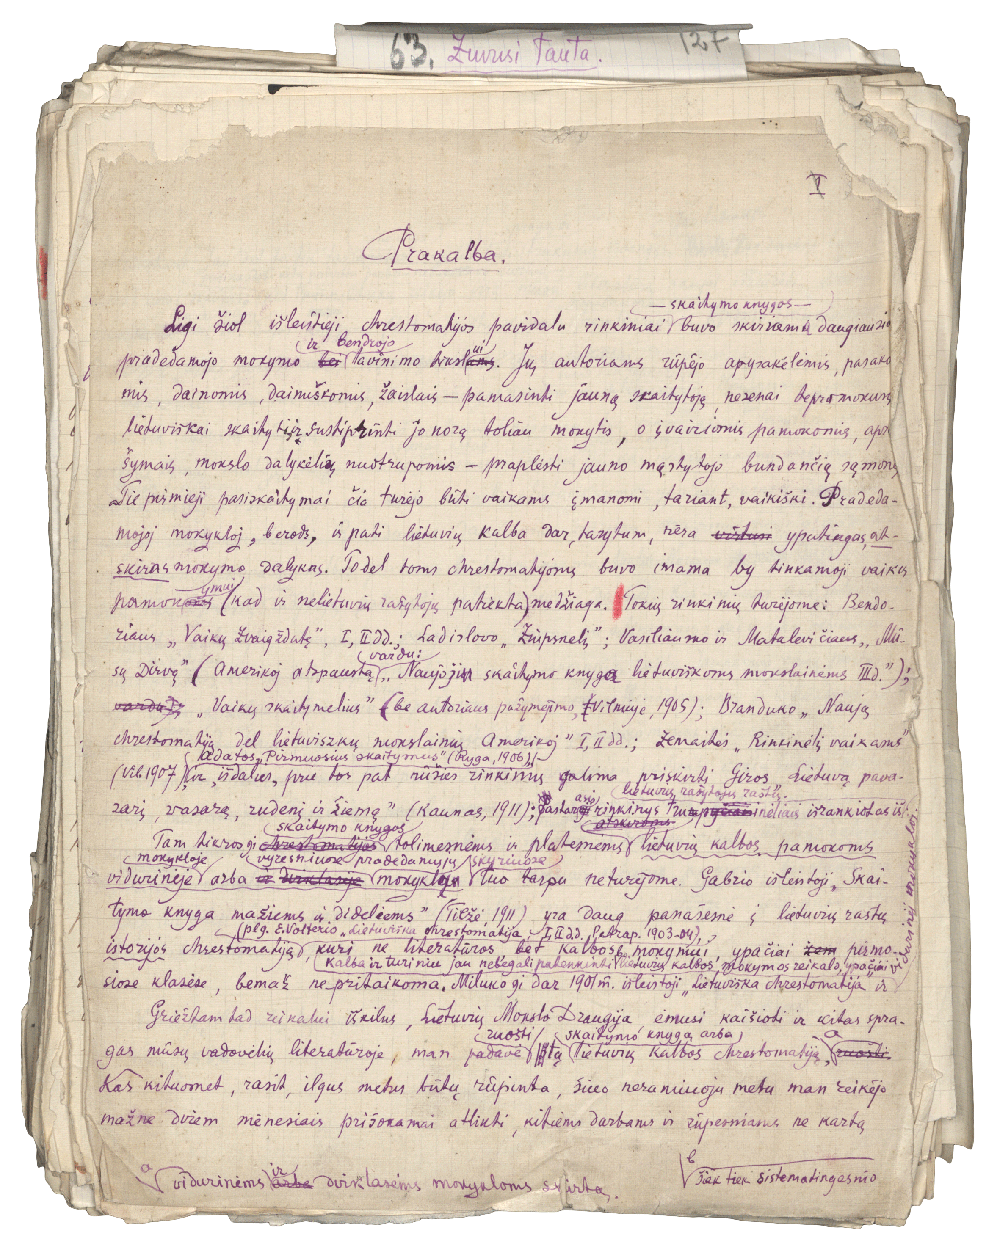 63. Žuvusi Tauta. 127
V
Prakalba.
— skaitymo knygos —
Ligi šiol išleistieji chrestomatijos pavidalu rinkiniai buvo skiriami daugiausia
ir bendrojo
pradedamojo mokymo bei lavinimo tikslams. Jų autoriams rūpėjo apysakėlėmis, pasako-
mis, dainomis, dainuškomis, žaislais — pamasinti jauną skaitytoją, nesenai tepramokusį
lietuviškai skaityti, ir sustiprinti jo norą toliau mokytis, o įvairiomis pamokomis, apra-
šymais, mokslo dalykėlių nuotrupomis — praplėsti jauno mąstytojo bundančią sąmonę.
Tie pirmieji pasiskaitymai čia turėjo būti vaikams įmanomi, tariant, vaikiški. Pradeda-
mojoj mokykloj, berods, ir pati lietuvių kalba dar, tarytum, nėra virtusi ypatingas, at-
skiras mokymo dalykas. Todel toms chrestomatijoms buvo imama by tinkamoji vaikų
ymui
pamokos (kad ir nelietuvių rašytojų patiekta) medžiaga. Tokių rinkinių turėjome: Bendo-
riaus „Vaikų žvaigždutę", I, II dd.; Ladislovo „Žiupsnelį"; Vasiliausko ir Matulevičiaus „Mū-
vardu:
sų Dirvą" (Amerikoj atspaustą „Naujoji skaitymo knyga lietuviškoms mokslainėms III d.");
vardu); „Vaikų skaitymėlius" (be autoriaus pažymėjimo, Vilniuje, 1905); Branduko „Naują
chrestomatiją del lietuviszkų mokslainių Amerikoj" I, II dd.; Žemaitės „Rinkinėlį vaikams"
Adatos „Pirmuosius skaitymus" (Ryga, 1906)
(Vil. 1907), ir, išdalies, prie tos pat rūšies rinkinių galima priskirti Giros „Lietuvą pava-
lietuvių rašytojų raštų.
sarį, vasarą, rudenį ir žiemą" (Kaunas, 1911); pastarasis rinkinys trupinėliais išrankiotas iš
atskirtomis
skaitymo knygos
Tam tikros gi chrestomatijos tolimesnėms ir platesnėms lietuvių kalbos pamokoms
mokykloje vyresniuose pradedamųjų skyriuose
vidurinėje arba ir dviklasėje mokykloje šiuo tarpu neturėjome. Gabrio išleistoji „Skai-
tymo knyga mažiems ir dideliems" (Tilžė, 1911) yra daug panašesnė į lietuvių raštų
(plg. E. Volterio „Lietuviška chrestomatija", I, II dd., Petrap. 1903-04),
istorijos chrestomatiją, kuri ne literatūros bet kalbos mokymui, ypačiai pirmo-
kalba ir turiniu jau nebegali patenkinti lietuvių kalbos mokymos reikalo, ypačiai vidurinėj mokykloj.
siose klasėse, bemaž nepritaikoma. Miluko gi dar 1901 m. išleistoji „Lietuviška chrestomatija" ir
Griežtam tad reikalui iškilus, „Lietuvių Mokslo Draugija" ėmusi kaišioti ir kitas spra-
ruošti skaitymo knygą arba
gas mūsų vadovėlių literatūroje, man padavė šitą lietuvių kalbos chrestomatiją, ruošti.
Kas kituomet, rasit, ilgus metus būtų rūpinta, šiuo neramiuoju metu man reikėjo
mažne dviem mėnesiais prišokamai atlikti, kitiems darbams ir rūpesniams ne kartą
a vidurinėms arba ir dviklasėms mokykloms skirtą.
b šiek tiek sistematingesnio